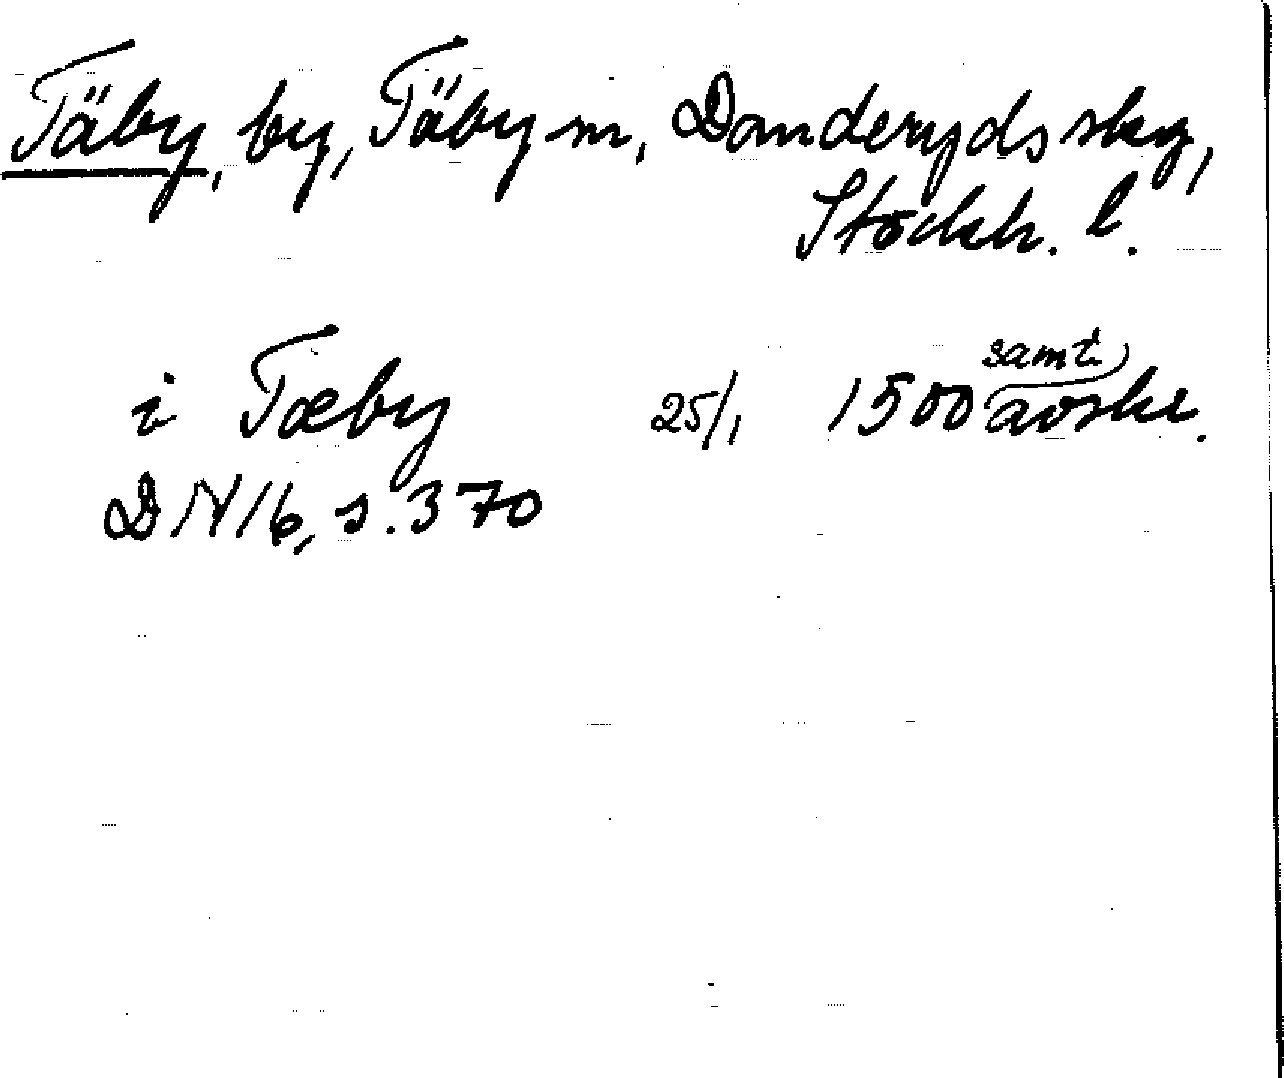 Täby, by, Täby sn, Danderyds skg,
Stockh. l.
i Tæby 25/1 1500 samt. avskr.
DN 16, s. 370